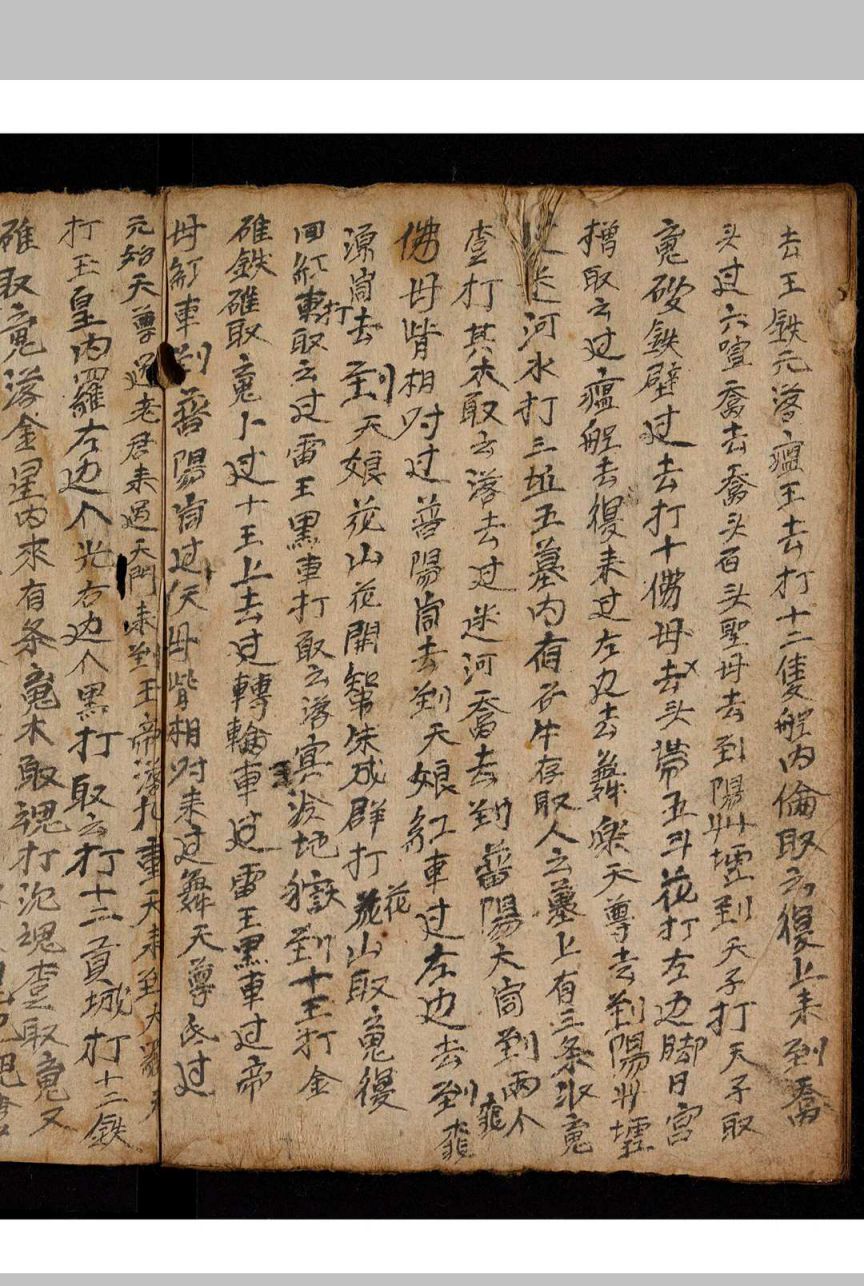 去王鉄元落瘟王去打十二隻船内倫取云復上来到喬
头过六喧喬去喬头百头聖母去到陽州墟到天子打天子取
䰟破鉄壁过去打十傌母去头帶五斗花打左边脚日宫
橧取云过瘟船去復来过左边去舞楽天尊去到陽州墟
迷河水打三坵五墓内有石牛存取人云墓上有三条𣲖䰟
查打其木取云落去过迷河喬去到普陽大峝到兩个
佛母背相对过普陽峝去到天娘紅車过左边去到
源峝去到天娘花山花開成群打花山取䰟復
回紅車打取云过雷王黑車打取云落冥冷地獄到十王打金
碓鉄碓取䰟卜过十王上去过轉輪車过雷王黑車过帝
母紅車到普陽峝过天母背相对来过舞天尊底过
元始天尊過老君来過天門来到玉帝落九重天来到大羅天
打玉皇内羅左边个光右边个黒打取云打十二頁城打十二鉄
碓取䰟落金星内來有条䰟木取魂打沉魂查取䰟又